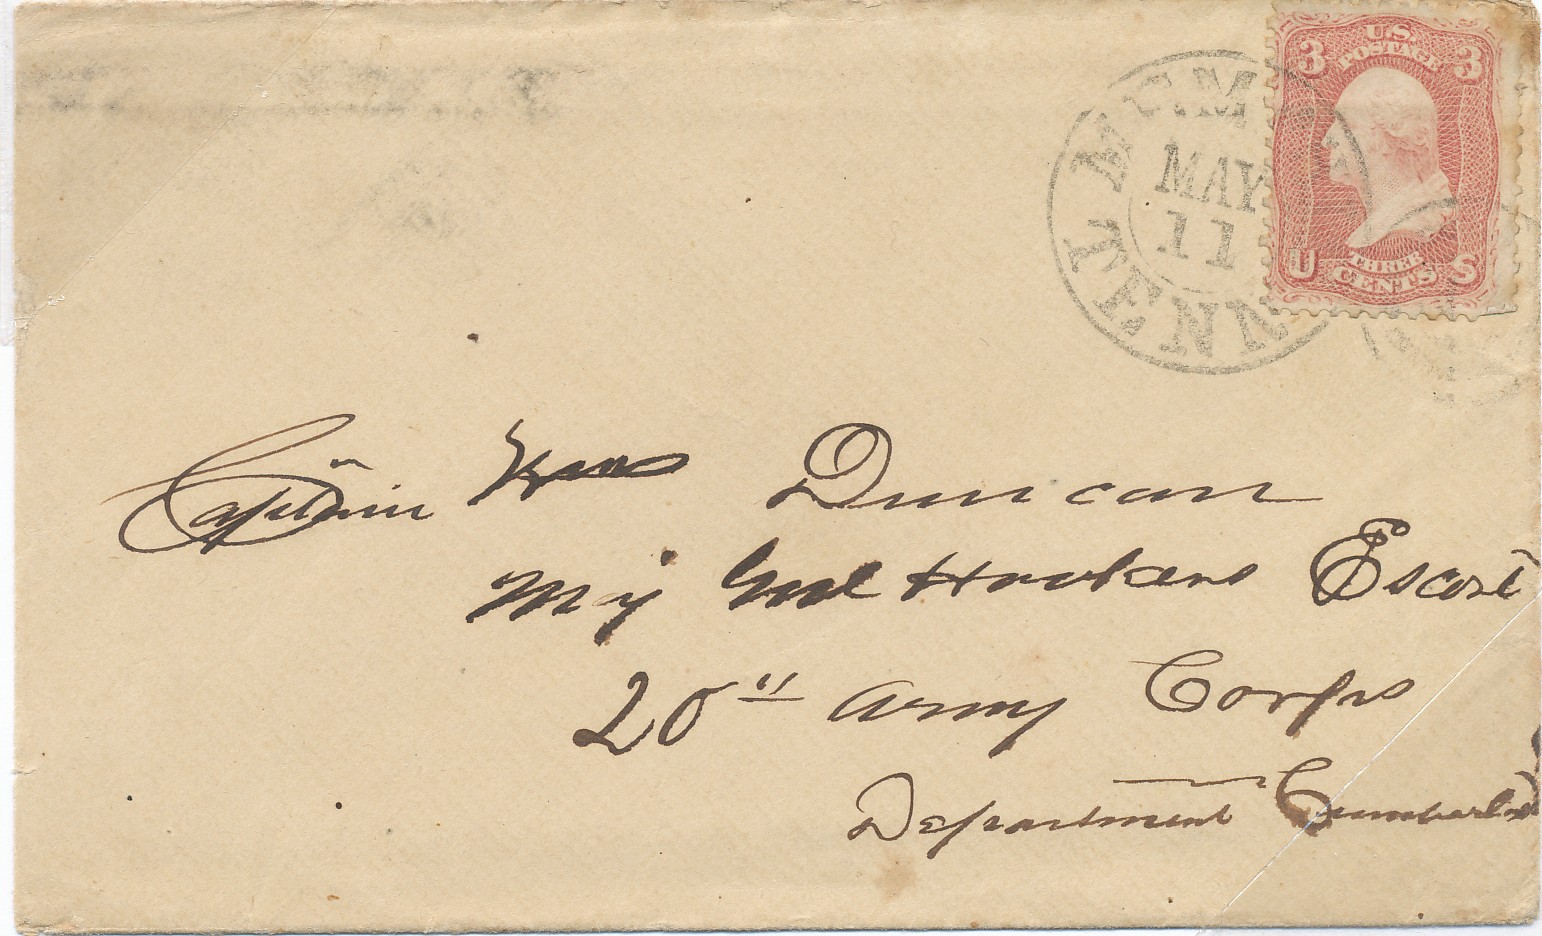 3 U.S. POSTAGE 3
U THREE CENTS S
MAY
11
Captain Wm Duncan
Maj Genl Hookers Escort
20" Army Corps
Department Cumberland